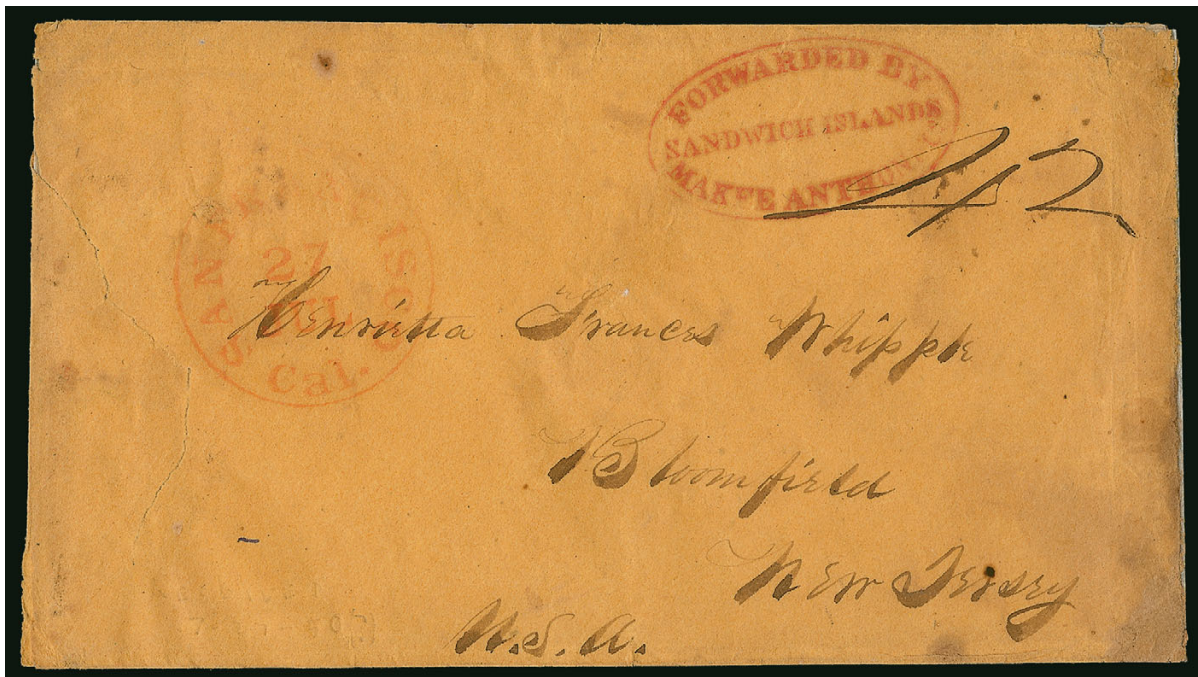 FORWARDED BY
SANDWICH ISLANDS
MAKEE ANTHON
42
SAN FRANCISCO
27
JUL
Cal.
Henrietta Frances Whipple
Bloomfield
New Jersey
U.S.A.